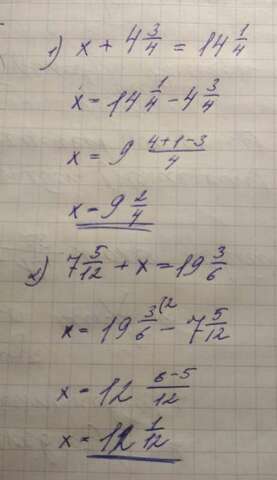 1) x + 4 3/4 = 14 1/4
x = 14 1/4 - 4 3/4
x = 9 (4+1-3)/4
x = 9 2/4
2) 7 5/12 + x = 19 3/6
x = 19 3/6 (2 - 7 5/12
x = 12 (6-5)/12
x = 12 1/12